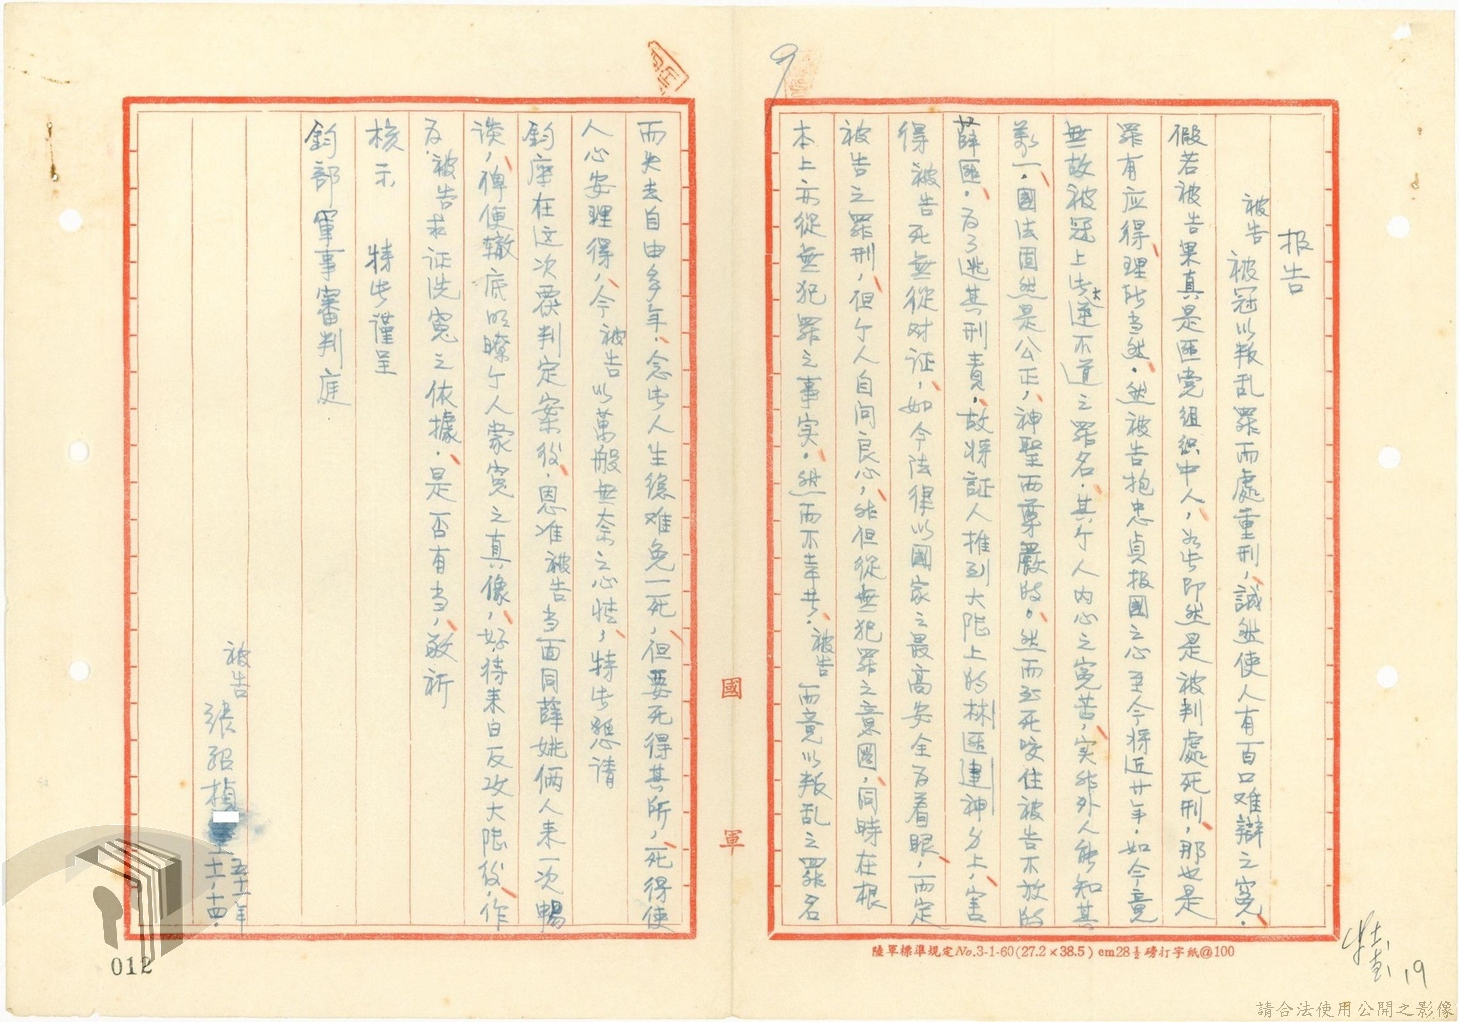 報告
被告被冠以叛乱罪而處重刑，誠然使人有百口难辯之寃．
假若被告果真是匪党组织中人，如此即然是被判處死刑，那也是
罪有应得，理所当然．然被告抱忠貞报國之心至今将近廿年，如今竟
無故被冠上此大逆不道之罪名．其个人内心之寃苦，实非外人能知其
萬一，國法固然是公正，神聖而尊嚴的。然而至死咬住被告不放的
薛匪，为了逃其刑責，故将証人推到大陸上的林匪建神身上，害
得被告死無從对证，如今法律以國家之最高安全为着眼，而定
被告之罪刑，但个人自问良心，非但從無犯罪之意圖，同時在根
本上亦從無犯罪之事实．然而不幸共．被告而竟以叛乱之罪名
而失去自由多年，念此人生總难免一死，但要死得其所，死得使
人心安理得，今被告以萬般無奈之心情，特此懇请
鈞座在这次覆判定案後，恩准被告当面同薛姚俩人来一次暢
谈，俾便辙底明瞭个人蒙寃之真像，好待来日反攻大陸後，作
为被告求证洗寃之依據．是否有当，敬祈
核示 特此谨呈
鈞部軍事審判庭
被告 張紹楨
五十一年
十一．十四．
國軍
陸軍標準規定No.3-1-60(27.2×38.5) cm28½磅打字紙@100
9
19
012
請合法使用公開之影像